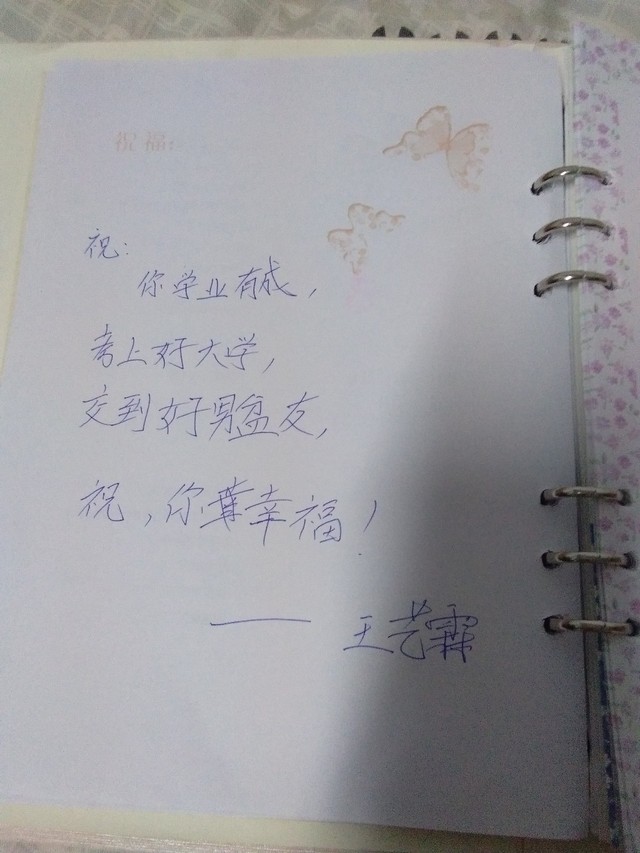 祝福:
祝:
你学业有成,
考上好大学,
交到好男盆友,
祝,你幸福!
—— 王艺霖